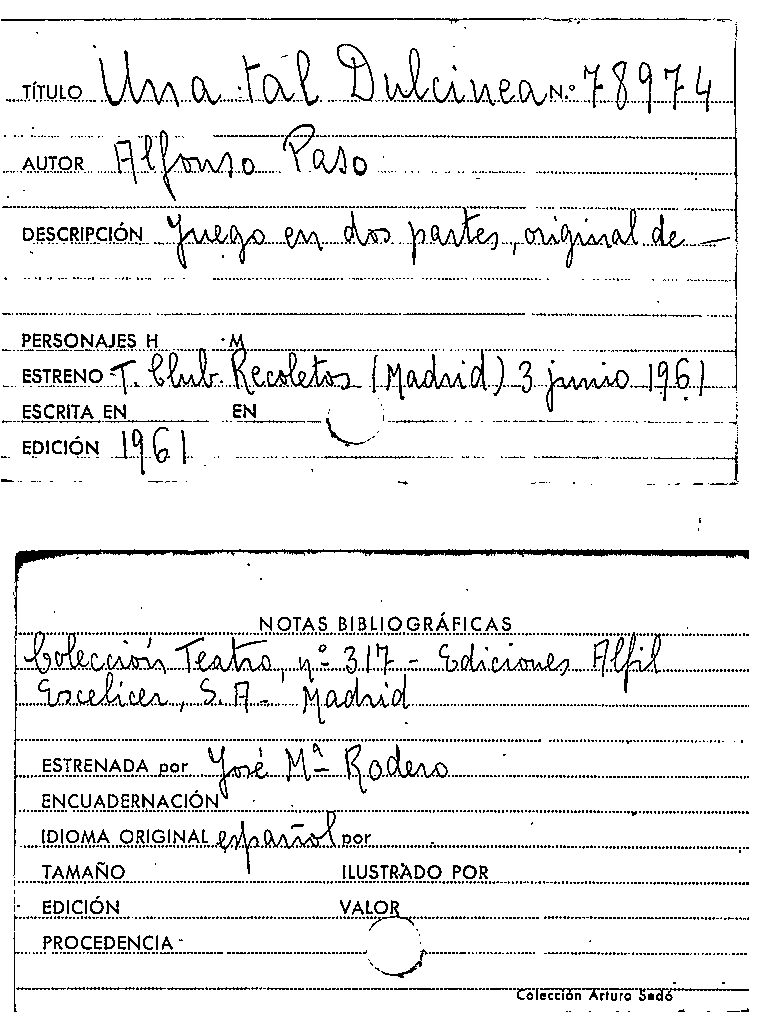 TÍTULO Una tal Dulcinea N.º 78974
AUTOR Alfonso Paso
DESCRIPCIÓN Juego en dos partes, original de —
PERSONAJES H M
ESTRENO T. Club. Recoletos (Madrid) 3 junio 1961
ESCRITA EN EN
EDICIÓN 1961
NOTAS BIBLIOGRÁFICAS
Colección Teatro, nº 317 - Ediciones Alfil
Escelicer, S.A - Madrid
ESTRENADA por José Mª Rodero
ENCUADERNACIÓN
IDIOMA ORIGINAL español por
TAMAÑO ILUSTRADO POR
EDICIÓN VALOR
PROCEDENCIA
Colección Arturo Sedó